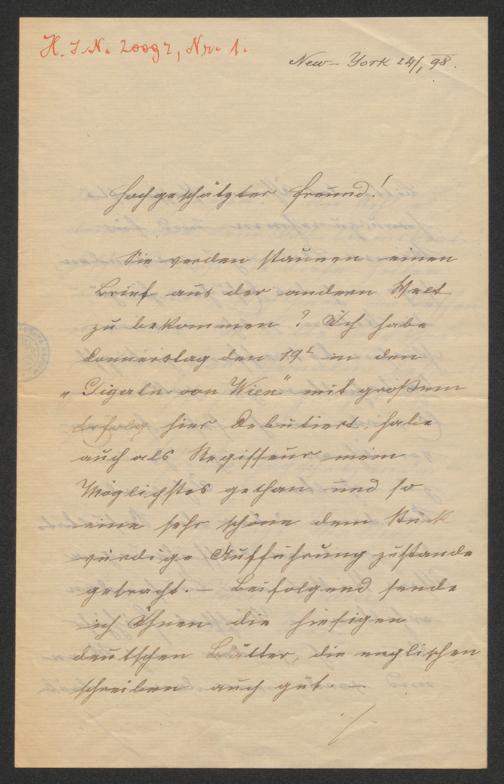 H. I. N. 20092, Nr. 1.
New-York 24/1 98.
Hochgeschätzter Freund!
Sie werden staunen einen
Brief aus der andern Welt
zu bekommen? Ich habe
Donnerstag den 19t in den
„Gigerln von Wien" mit großem
Erfolg hier debutiert; habe
auch als Regisseur mein
Möglichstes gethan und so
eine sehr schöne dem Stück
würdige Aufführung zustande
gebracht. — Beifolgend sende
ich Ihnen die hiesigen
deutschen Blätter, die englischen
schreiben auch gut. —
./.